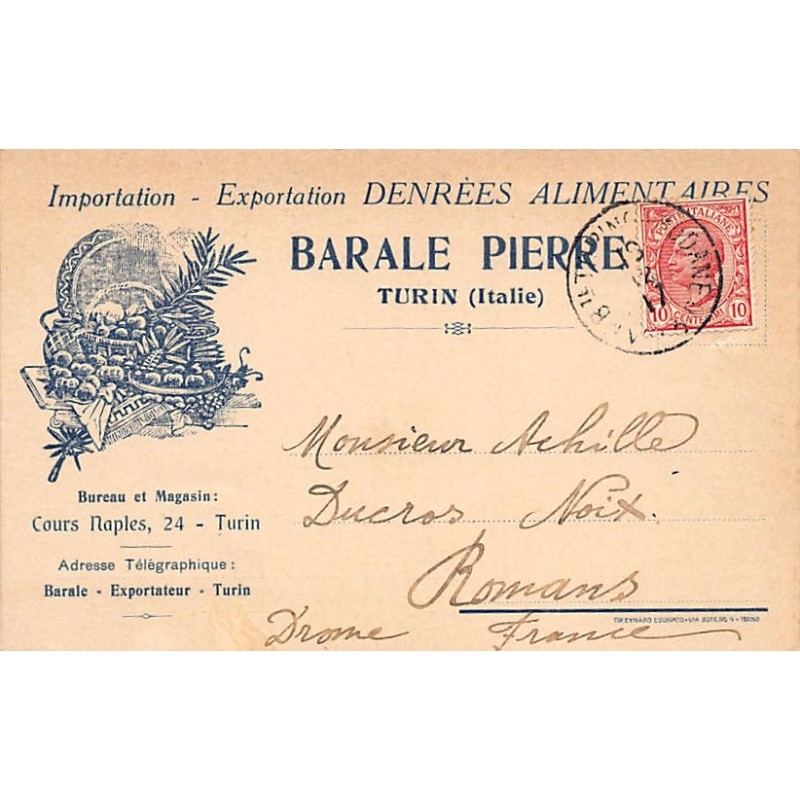 Importation - Exportation DENRÈES ALIMENTAIRES
BARALE PIERRE
TURIN (Italie)
POSTE ITALIANE
10 CENTESIMI 10
Bureau et Magasin:
Cours Naples, 24 - Turin
Adresse Télégraphique:
Barale - Exportateur - Turin
Monsieur Achille
Ducros Noix.
Romans
Drome France